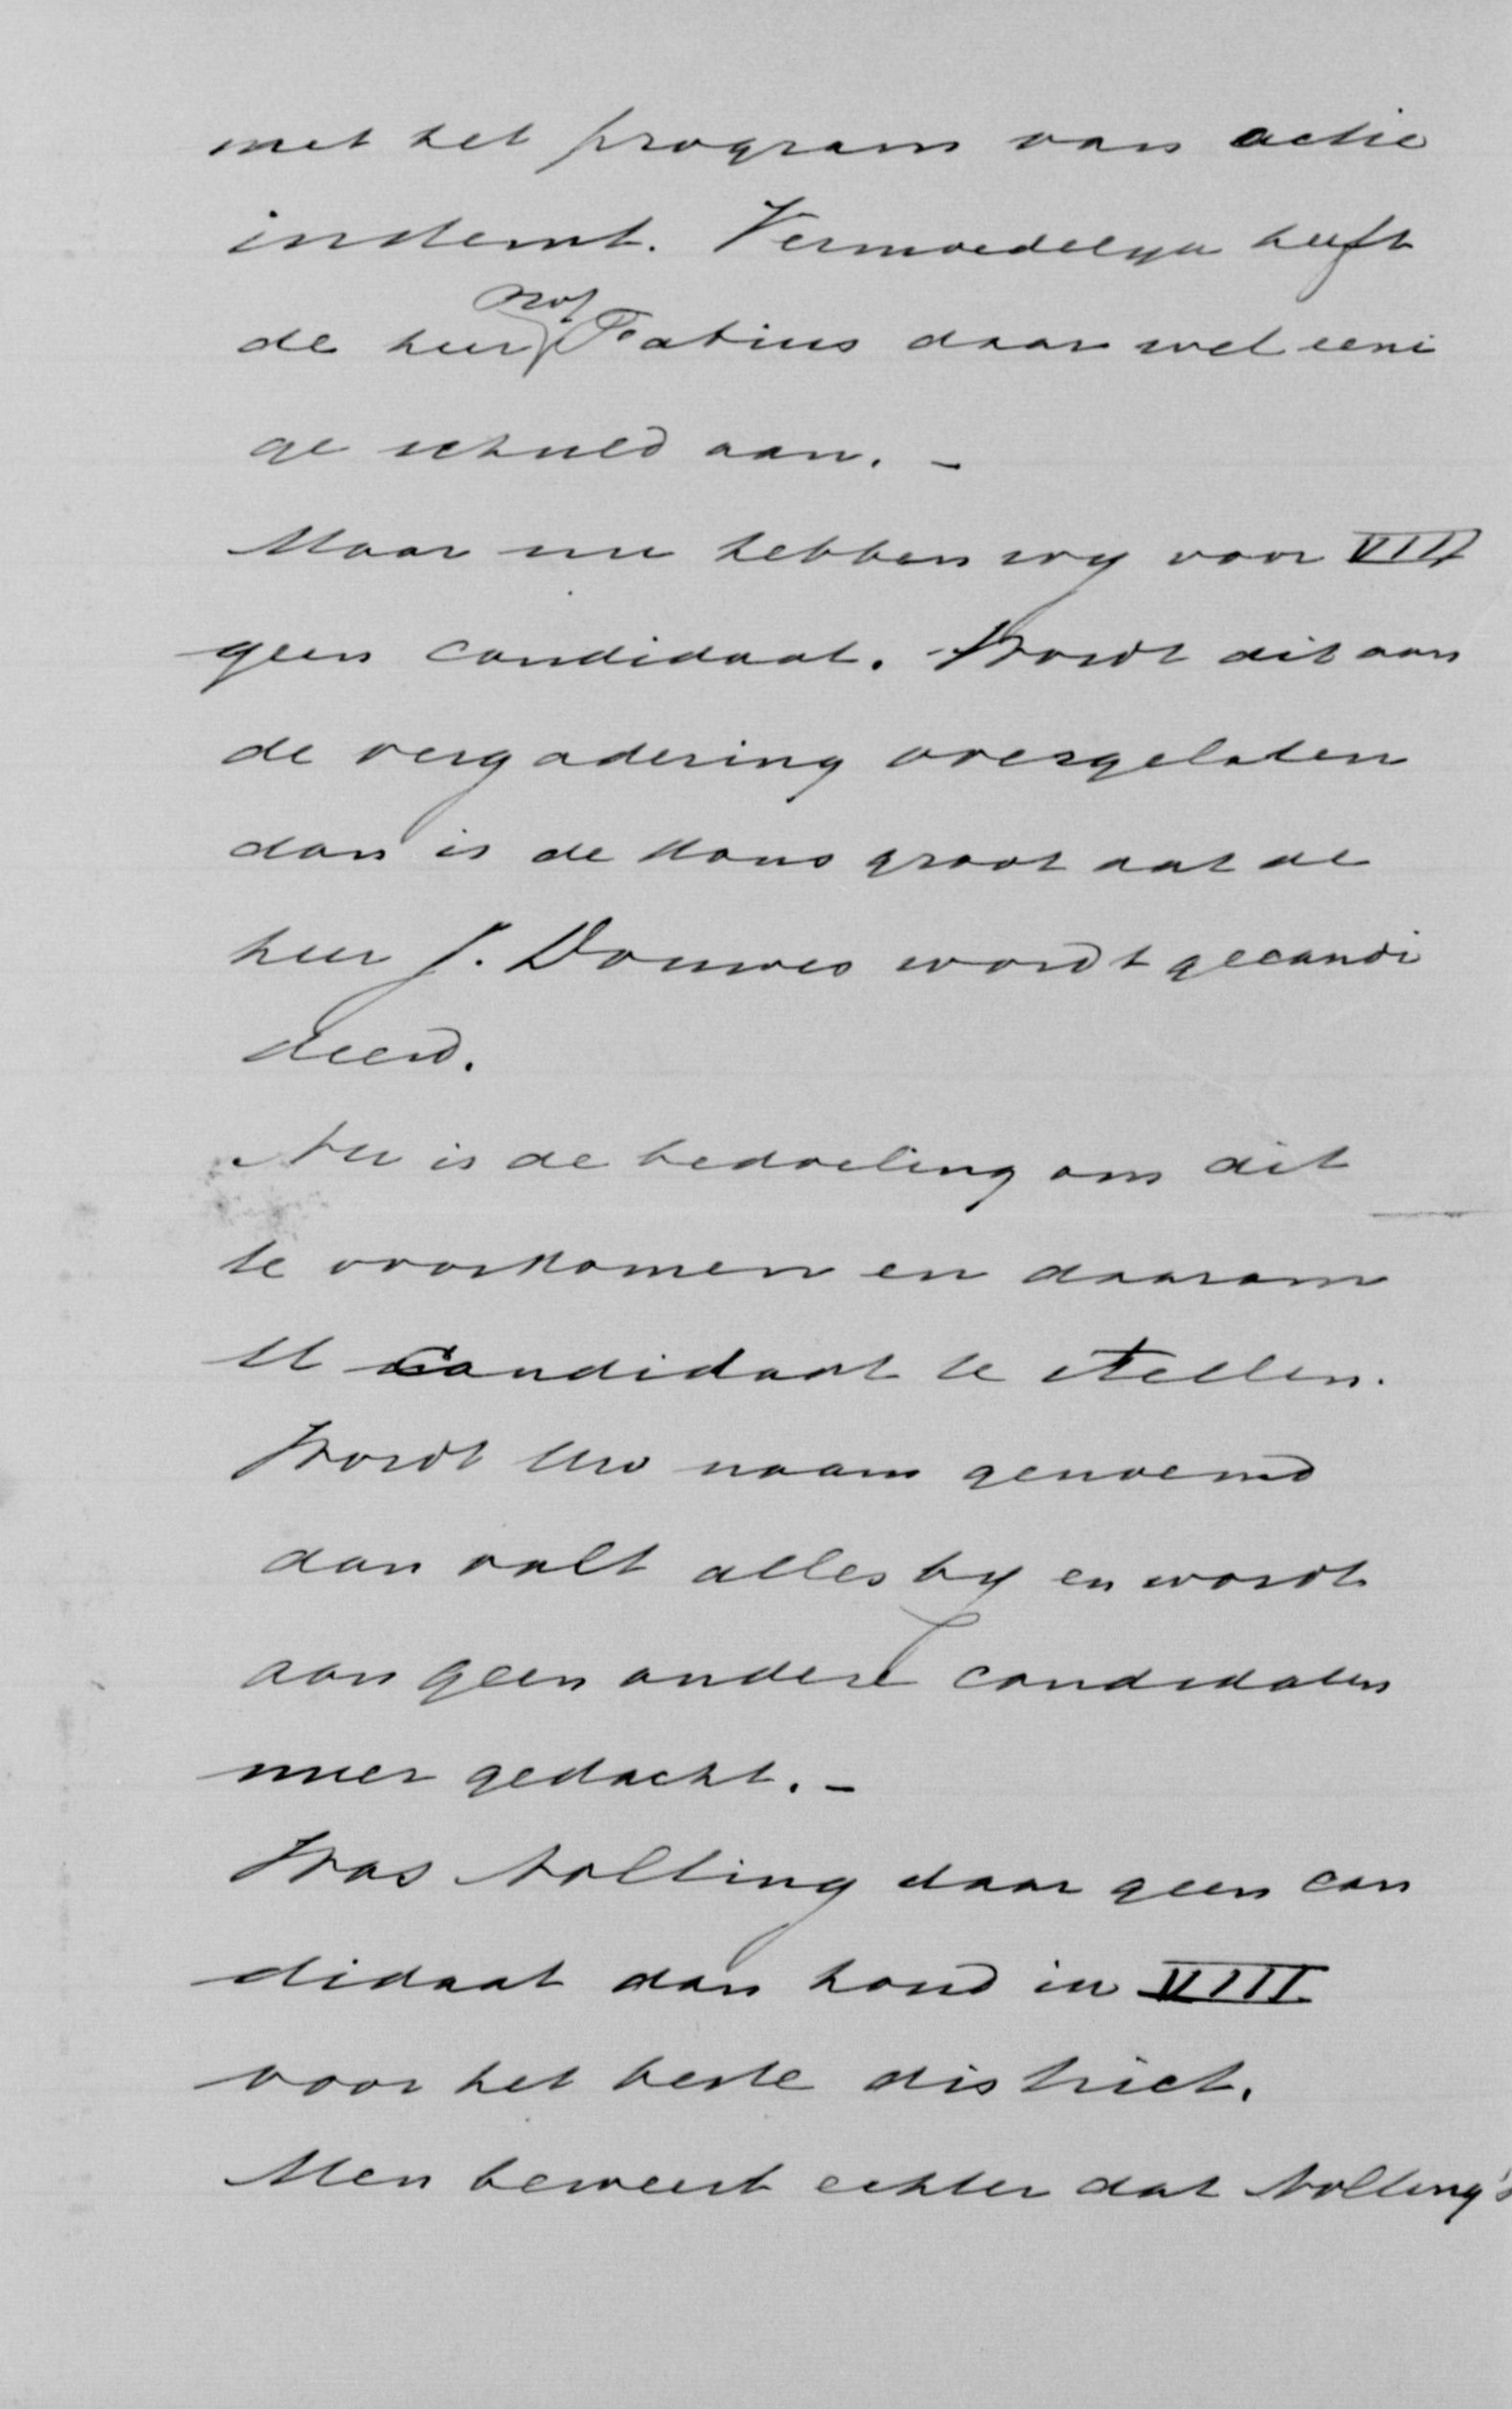 met het program van actie
instemt. Vermoedelyk heeft
de heer Prof Fabius daar wel eeni
ge schuld aan. -
Maar nu hebben wy voor VIII
geen candidaat. Wordt dit aan
de vergadering overgelaten
dan is de kans groot dat de
heer J. Douwes wordt gecandi
deerd.
Nu is de bedoeling om dit
te voorkomen en daarom
U candidaat te stellen.
Wordt Uw naam genoemd
dan valt alles by en wordt
aan geen andere candidaten
meer gedacht. -
Was Nolting daar geen can
didaat dan houd in VIII
voor het beste district.
Men beweert echter dat Nolting's